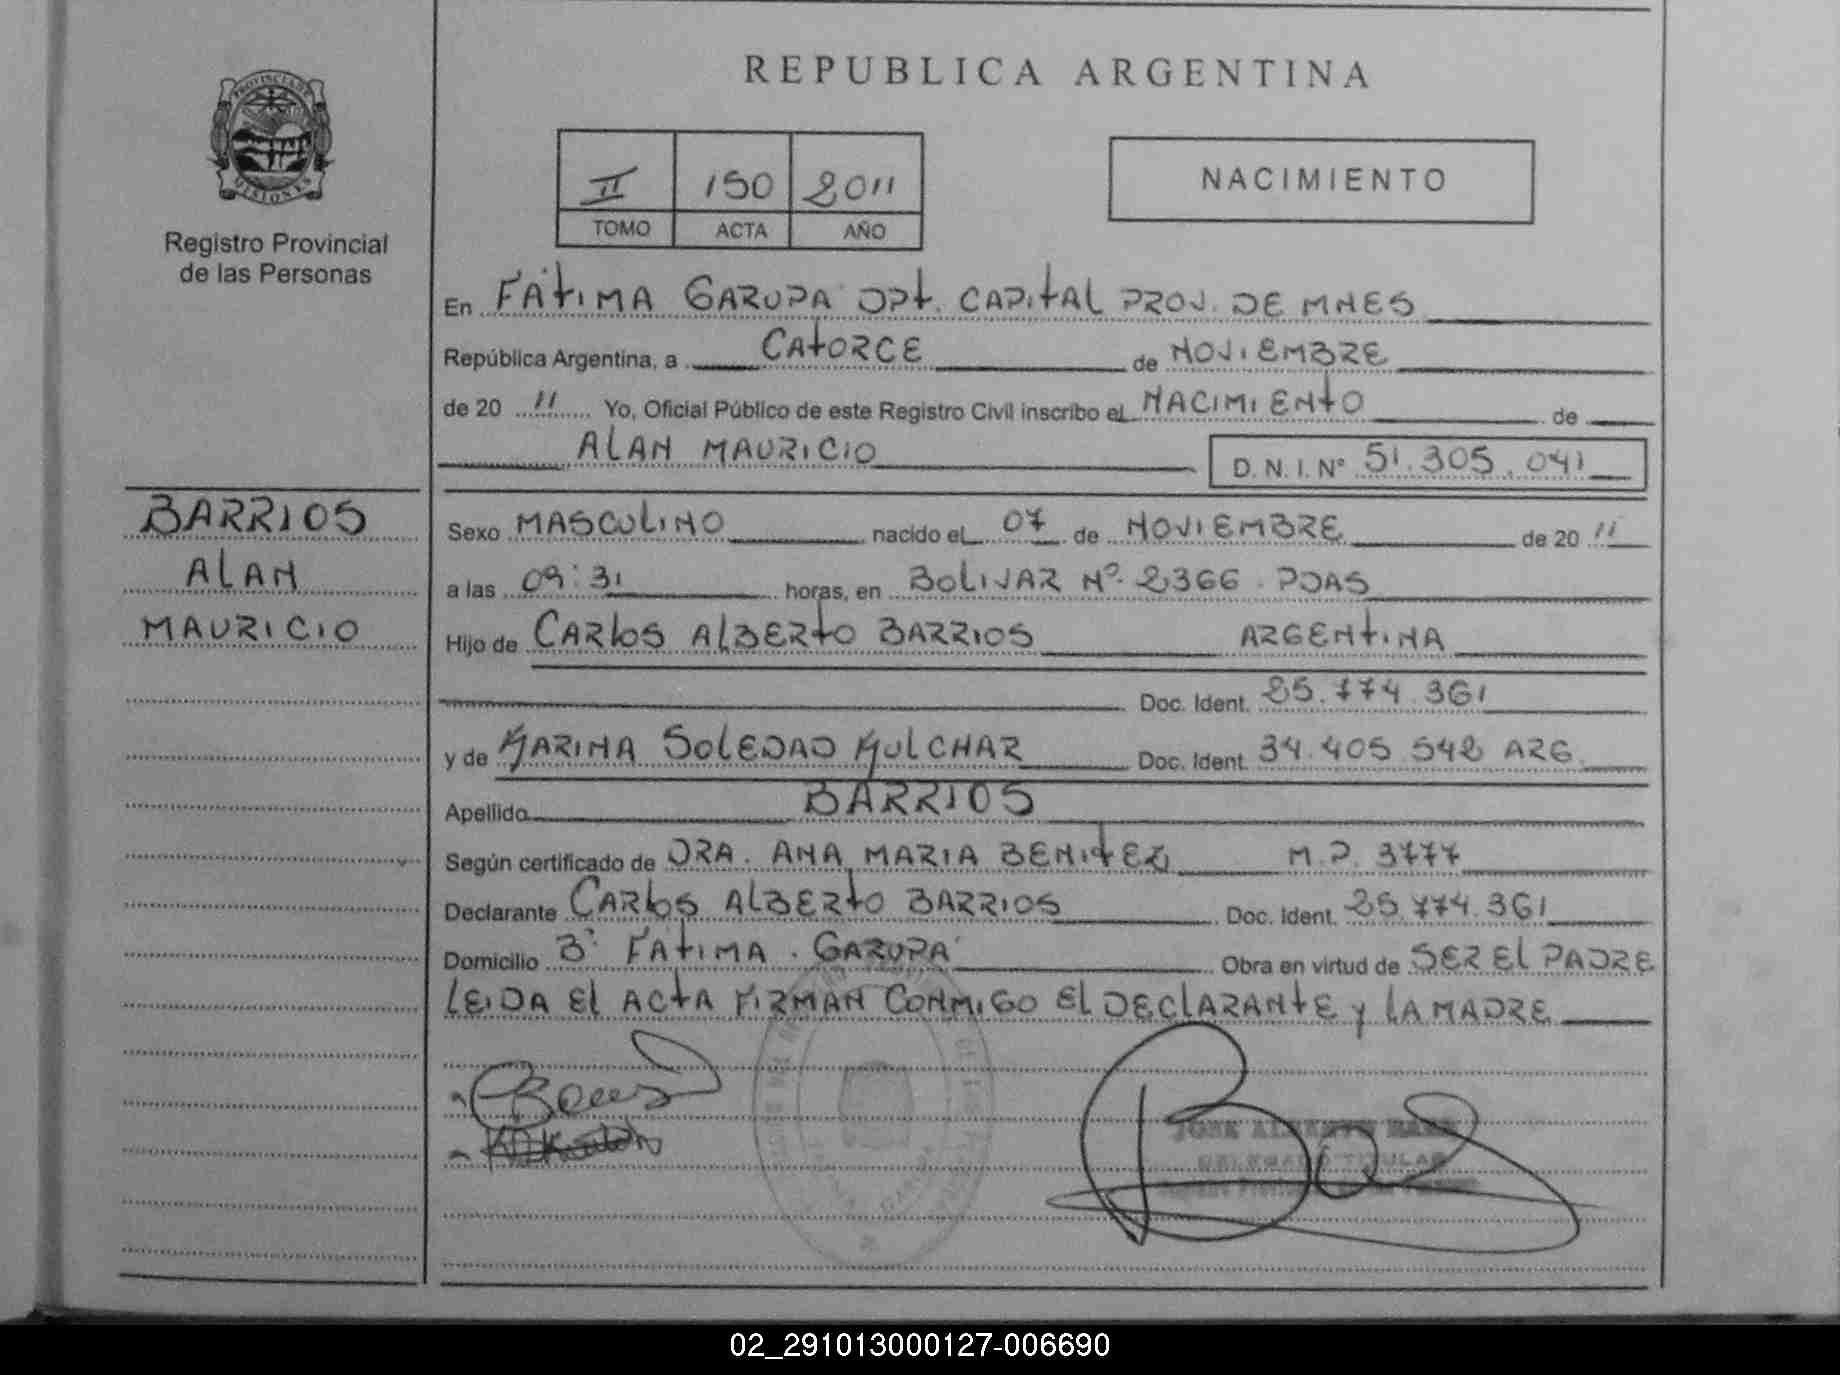 REPUBLICA ARGENTINA
PROVINCIA DE MISIONES
Registro Provincial
de las Personas
II 150 2011
TOMO ACTA AÑO
NACIMIENTO
En FÁTIMA GARUPA DPT. CAPITAL PROV. DE MNES
República Argentina, a CATORCE de NOVIEMBRE
de 20 11 Yo, Oficial Público de este Registro Civil inscribo el NACIMIENTO de
ALAN MAURICIO D. N. I. Nº 51.305.041
BARRIOS
ALAN
MAURICIO
Sexo MASCULINO nacido el 07 de NOVIEMBRE de 20 11
a las 09:31 horas, en BOLIVAR Nº 2366 . PDAS
Hijo de CARLOS ALBERTO BARRIOS ARGENTINA
Doc. Ident. 25.774.361
y de KARINA SOLEDAD KULCHAR Doc. Ident. 34.405 542 ARG
Apellido BARRIOS
Según certificado de DRA. ANA MARIA BENITEZ M.P. 3777
Declarante CARLOS ALBERTO BARRIOS Doc. Ident. 25.774.361
Domicilio Bº FATIMA . GARUPÁ Obra en virtud de SER EL PADRE
LEIDA EL ACTA FIRMAN CONMIGO EL DECLARANTE y LA MADRE
DELEGADO TITULAR
02_291013000127-006690